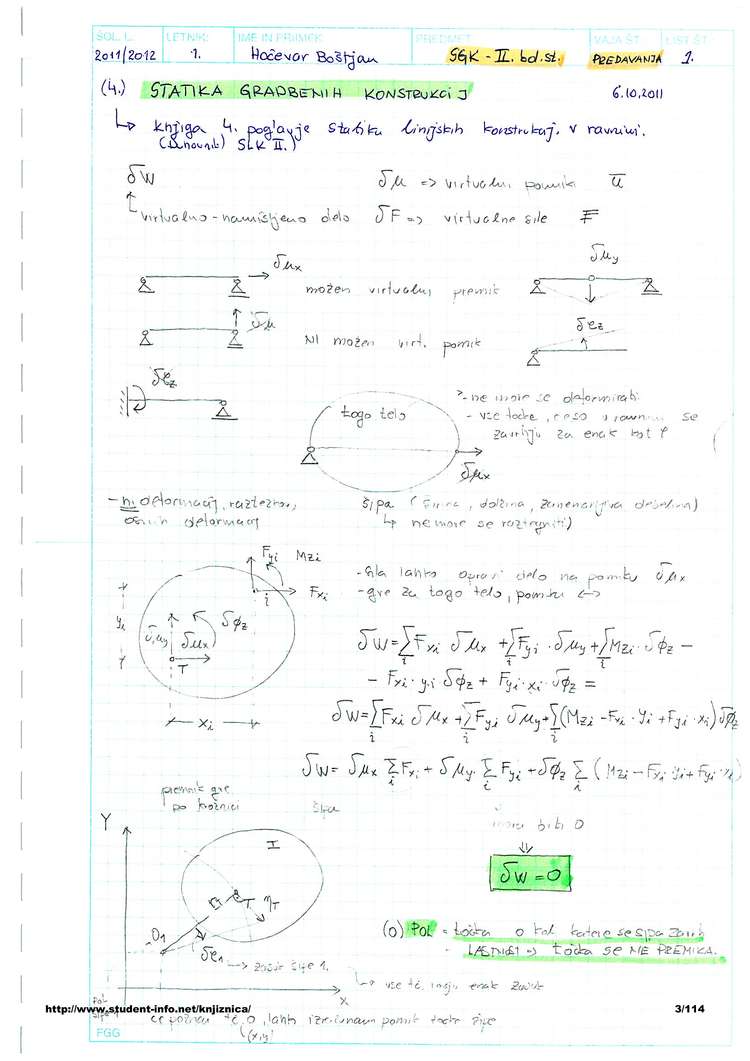 ŠOL. L. LETNIK: IME IN PRIIMEK PREDMET VAJA ŠT. LIST ŠT.
2011/2012 1. Hočevar Boštjan SGK - II. bol.st. PREDAVANJA 1.
(4.) STATIKA GRADBENIH KONSTRUKCIJ 6.10.2011
↳ knjiga 4. poglavje statika linijskih konstrukcij v ravnini.
SLK II.)
δW δu => virtualni pomiki u̅
virtualno - namišljeno delo δF => virtualne sile F̅
δuₓ δu_y
možen virtualni premik
δu δφ_z
NI možen virt. pomik
δφ_z
togo telo
- ne more se deformirati
- vse točke, se
zavrtijo za enak kot φ
δuₓ
- ni deformacij, raztezkov,
osnih deformacij
šipa (širina, dolžina, zanemarljiva debelina)
↳ ne more se raztegniti)
F_yi M_zi
F_xi
i
- sila lahko opravi delo na pomiku δuₓ
- gre za togo telo, pomiki ↔
y_i δu_y δuₓ δφ_z
T
x_i
δW = ∑_i F_xi δuₓ + ∑_i F_yi · δu_y + ∑_i M_zi · δφ_z -
- F_xi · y_i δφ_z + F_yi · x_i · δφ_z =
δW = ∑_i F_xi δuₓ + ∑_i F_yi δu_y + ∑_i (M_zi - F_xi · y_i + F_yi · x_i) δφ_z
δW = δuₓ ∑_i F_xi + δu_y · ∑_i F_yi + δφ_z ∑_i (M_zi - F_xi y_i + F_yi x_i)
premik gre
po krožnici
šipa
mora biti 0
⇓
δW = 0
Y
I
r_T
T
η_T
O₁
δφ₁
→ zasuk šipe 1.
X
(0) POL = točka o kol katere se šipa zavrti
- LASTNOST → točka se NE PREMIKA.
↳ vse tč. imajo enak zasuk
pol
šipe 1
http://www.student-info.net/knjiznica/ 3/114
če poznam tč. O, lahko izračunam pomik točke šipe
(x,y)
FGG